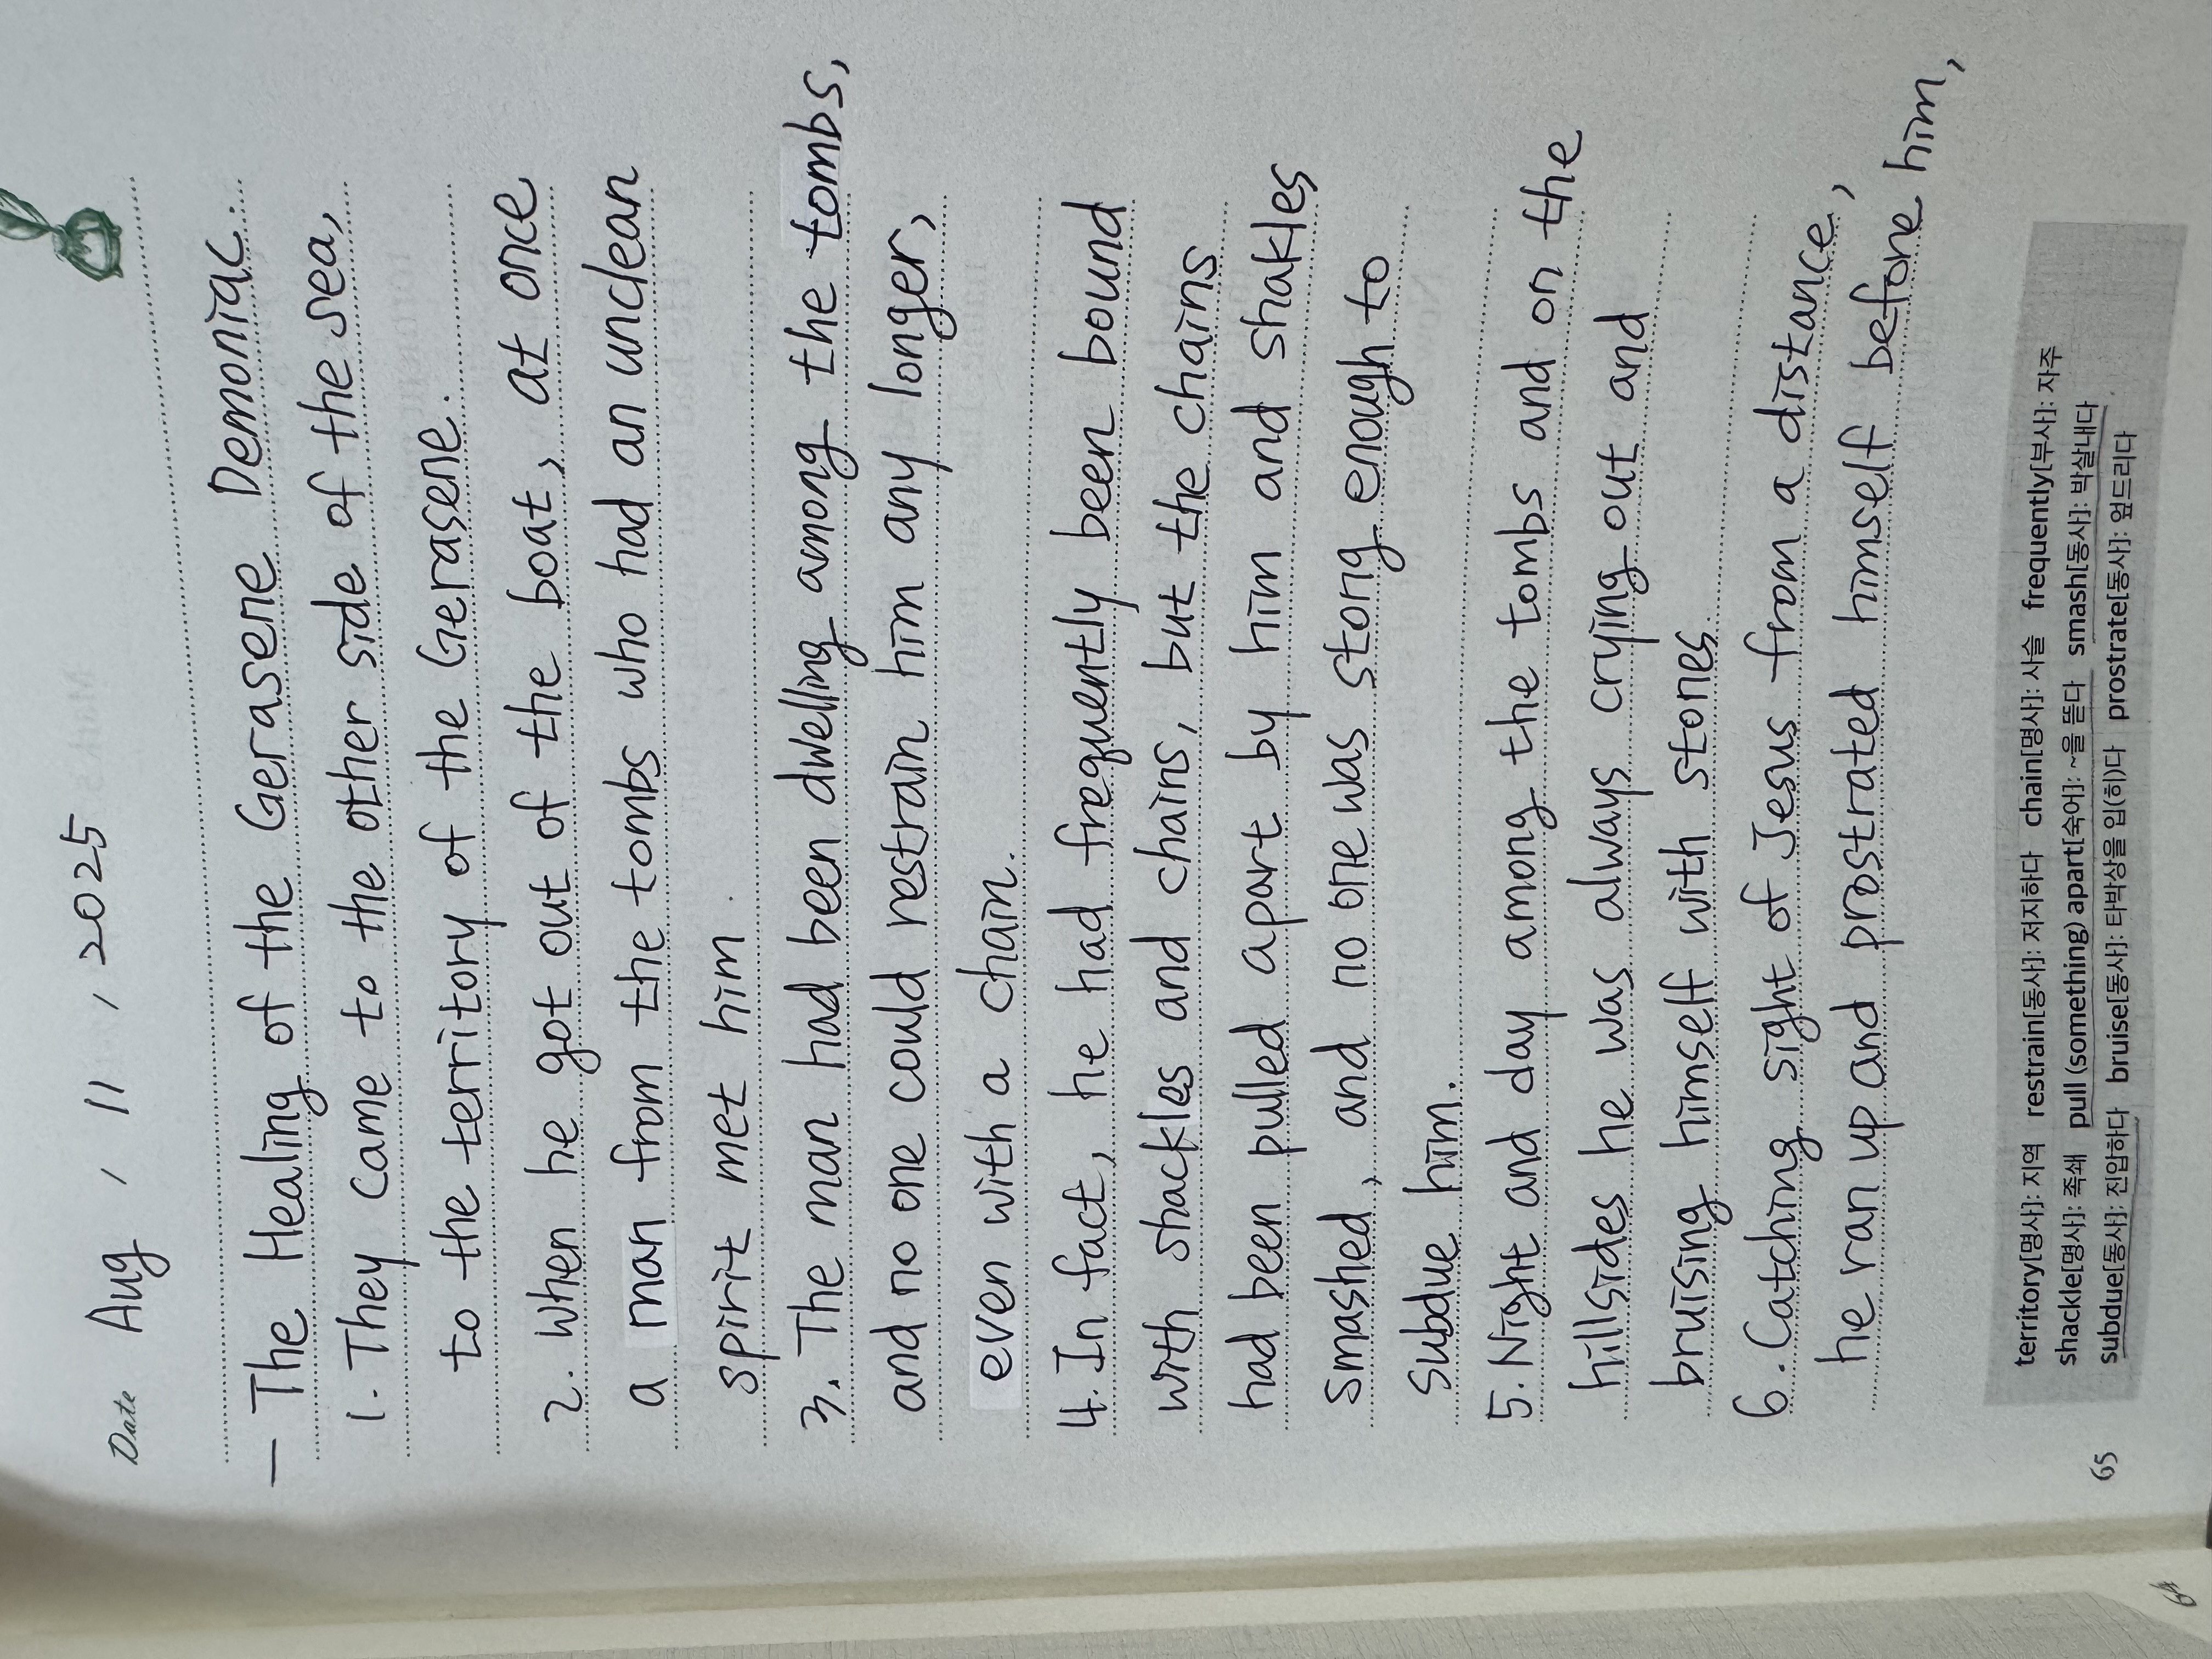 Date Aug / 11 / 2025
— The Healing of the Gerasene Demoniac.
1. They came to the other side of the sea,
to the territory of the Gerasene.
2. When he got out of the boat, at once
a man from the tombs who had an unclean
spirit met him.
3. The man had been dwelling among the tombs,
and no one could restrain him any longer,
even with a chain.
4. In fact, he had frequently been bound
with shackles and chains, but the chains
had been pulled apart by him and shakles
smashed, and no one was stong enough to
subdue him.
5. Night and day among the tombs and on the
hillsides he was always crying out and
bruising himself with stones.
6. Catching sight of Jesus from a distance,
he ran up and prostrated himself before him,
territory[명사]: 지역 restrain[동사]: 저지하다 chain[명사]: 사슬 frequently[부사]: 자주
shackle[명사]: 족쇄 pull (something) apart[숙어]: ~을 뜯다 smash[동사]: 박살내다
subdue[동사]: 진압하다 bruise[동사]: 타박상을 입(히)다 prostrate[동사]: 엎드리다
65
64